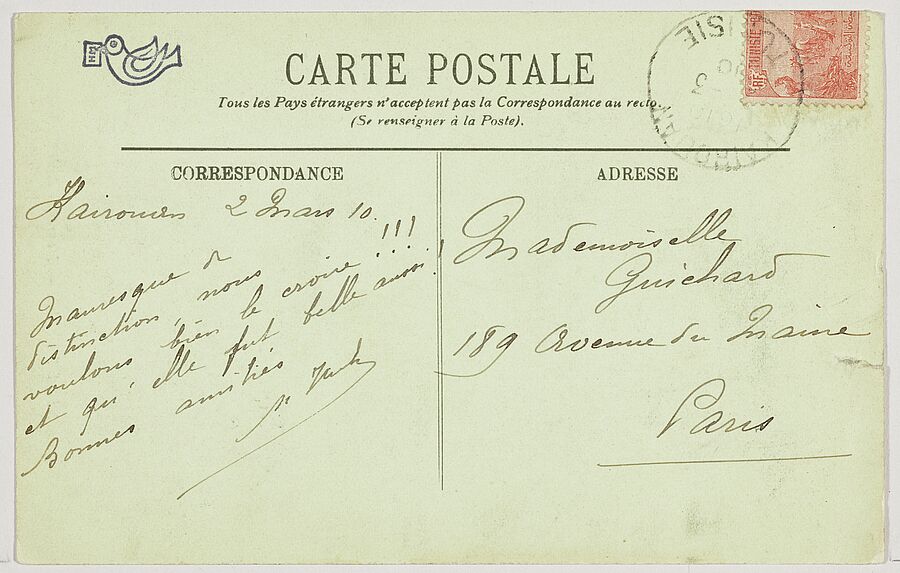 CARTE POSTALE
Tous les Pays étrangers n'acceptent pas la Correspondance au recto.
(Se renseigner à la Poste).
TUNISIE
KAIROUAN
RF TUNISIE
CORRESPONDANCE
Kairouan 2 Mars 10.
Mauresque de
distinction, nous
voulons bien le croire !!!
et qu'elle fut belle aussi!
Bonnes amitiés
ADRESSE
Mademoiselle
Guichard
189 Avenue du Maine
Paris